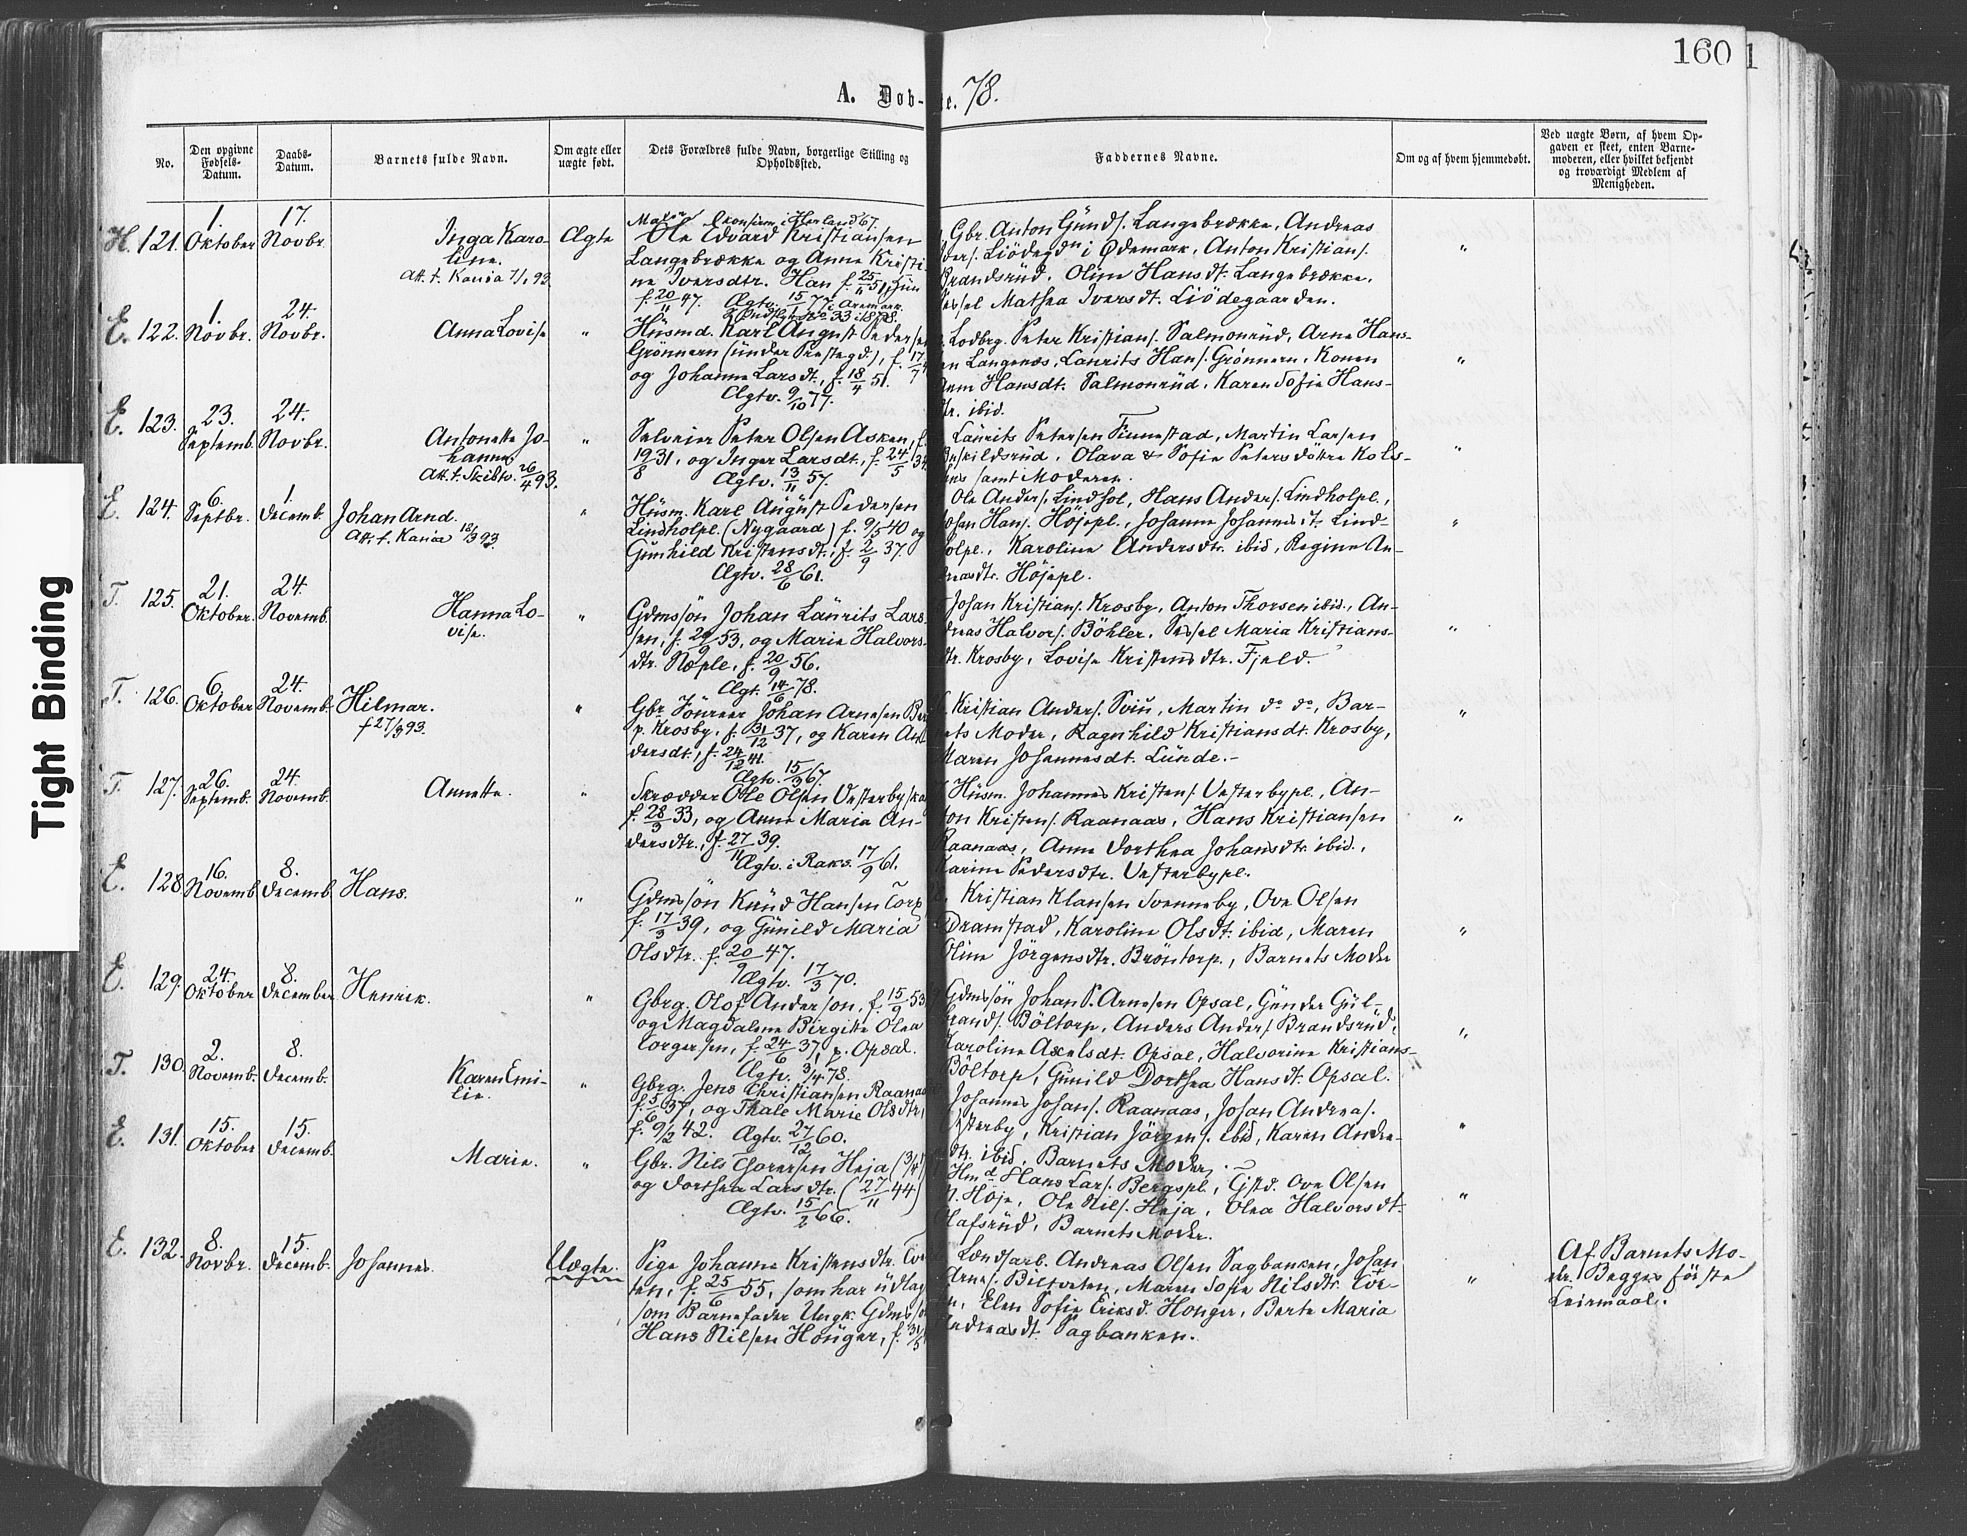 160
1
A. Døb- e. 78.
No.
Den opgivne Fødsels-Datum.
Daabs-Datum.
Barnets fulde Navn.
Om ægte eller uægte født.
Dets Forældres fulde Navn, borgerlige Stilling og Opholdssted.
Faddernes Navne.
Om og af hvem hjemmedøbt.
Ved uægte Børn, af hvem Opgaven er skeet, enten Barnemoderen, eller hvilket bekjendt og troværdigt Medlem af Menigheden.
Tight Binding
H. 121. 1. Oktober 17. Novbr. Inga Karo-
line.
Att. t. Kania 7/1 93
Ægte
Ole Edvard Kristiansen
Langebrække og Anne Kristi-
ne Iversdtr. Han f. 25/11 51, Hün
f. 20/11 47. Ægtv. 15/ 77 i Aremark
Gbr. Anton Günds. Langebrække, Andreas
ders. Liödegdn i Ødemark, Anton Kristians.
Brandsrüd, Oline Hansdt. Langebrække,
Mathea Iversdt. Liödegaarden.
"
E. 122. 1. Novbr. 24. Novbr. Anna Lovise
"
Hüsmd. Karl August Peders
Grönnern (ünder Prestegd), f. 17/7
og Johanne Larsdt., f. 18/4 51.
Ægtv. 9/10 77.
Lodbrg. Peter Kristians. Salmonrüd, Arne Hans-
en Langenæs, Laurits Hans. Grönnern, Konen
Hansdt. Salmonrüd, Karen Sofie Hans-
tr. ibid.
"
E. 123. 23. Septemb. 24. Novbr. Antonette Jo-
hanne
Att. t. Skibtv. 26/4 93.
"
Selveier Peter Olsen Asken, f.
19/8 31, og Inger Larsdt., f. 24/5 34
Ægtv. 13/11 57.
Laurits Petersen Finnestad, Martin Larsen
Eskildsrüd, Olava & Sofie Petersdöttre Kols-
samt Moderen.
"
E. 124. 6. Septbr. 1. Decemb. Johan Arnd.
Att. t. Kania 18/3 93
"
Hüsm. Karl Augüst Pedersen
Lindholpl. (Nygaard) f. 9/5 40 og
Gunhild Kristensdt., f. 2/9 37.
Ægtv. 28/6 61.
Ole Anders. Lindhol, Hans Anders. Lindholpl.,
Johan Hans. Höjepl., Johanne Johannesdt. Lind-
holpl., Karoline Andersdtr. ibid, Regine An-
dreasdtr. Höjepl.
"
T. 125. 21. Oktober. 24. Novemb. Hanna Lo-
vise.
"
Gdmssön Johan Laurits Lars
sen, f. 29/9 53, og Marie Halvors-
dtr. Næple, f. 20/9 56.
Ægt. 14/6 78.
Johan Kristians. Krosby, Anton Thorsen ibid., An-
dreas Halvors. Böhler, Maria Kristians-
dtr. Krosby, Lovise Kristensdtr. Fjeld.
"
T. 126. 6. Oktober 24. Novemb. Hilmar.
f 27/3 93.
"
Gbr. Johan Arnesen Ber
p. Krosby, f. 31/12 37, og Karen An
dersdt., f. 24/12 41.
Ægtv. 15/3 67.
Kristian Anders. Sviu, Martin do do, Bar-
nets Moder, Ragnhild Kristiansdt. Krosby,
Maren Johannesdt. Lünde.
"
T. 127. 26. Septemb. 24. Novemb. Annette.
"
Skrædder Ole Olsen Vesterby
f. 28/3 33, og Anne Maria An-
dersdtr., f. 27/11 39.
Ægtv. i Raks. 17/9 61.
Hüsm. Johannes Kristens. Vesterbypl., An-
ton Kristens. Raanaas, Hans Kristiansen
Raanaas, Anne Dorthea Johansdtr. ibid.,
Karine Pedersdtr. Vesterbypl.
"
E. 128 16. Novemb. 8. Decemb. Hans.
"
Gdmssön Knüd Hansen Torp
f. 17/3 39, og Günild Maria
Olsdtr. f. 20/9 47.
Ægtv. 17/3 70.
Kristian Klausen Svenneby, Ove Olsen
Dramstad, Karoline Olsdt. ibid, Maren
Oline Jörgensdtr. Bröntorp., Barnets Moder
"
E. 129. 24. Oktober 8. December Henrik.
"
Gbrg. Olof Anderson, f. 15/9 53
og Magdalene Birgitte Olea
Torgersen, f. 24/6 37, p. Opsal.
Ægtv. 3/4 78.
Gdmssön Johan P. Arnesen Opsal, Günder Gül-
brands. Böltorp, Anders Anders. Brandsrüd,
Karoline Axelsdt. Opsal, Halvorine Kristians-
Böltorp, Günild Dorthea Hansdt. Opsal.
"
T. 130. 2. Novemb. 8. Decemb. Karen Emi-
lie.
"
Gbrg. Jens Christiansen Raanaas
f. 5/6 37, og Thale Marie Olsdtr,
f. 9/2 42. Ægtv. 27/12 60.
Johannes Johans. Raanaas, Johan Andreas.
Vesterby, Kristian Jörgens. ibid, Karen Andre-
dtr. ibid, Barnets Moder.
"
E. 131. 15. Oktober 15. Decemb. Marie.
"
Gbr. Nils Thoresen Heja (3/4
og Dorthea Larsdtr. (27/11 44)
Ægtv. 15/2 66.
Hmd. Hans Lars. Bergspl., Gstd. Ove Olsen
Höje, Ole Nils. Heja, Olea Halvorsdt.
Hafsrüd, Barnets Moder.
"
E. 132. 8. Novbr. 15. Decemb. Johannes.
Uægte.
Pige Johanne Kristensdtr. Tve
ten, f. 25/6 55, som har üdlag
som Barnefader Ungk. Gdms
Hans Nilsen Honger, f. 31/5
Landsarb. Andreas Olsen Sagbanken, Johan
Arnes. Biltveten, Maren Sofie Nilsdtr. Tve-
n, Elen Sofie Eriksd. Honger, Berte Maria
Andreasdt. Sagbanken.
"
Af Barnets Mo-
der. Begges förste
Leirmaal.